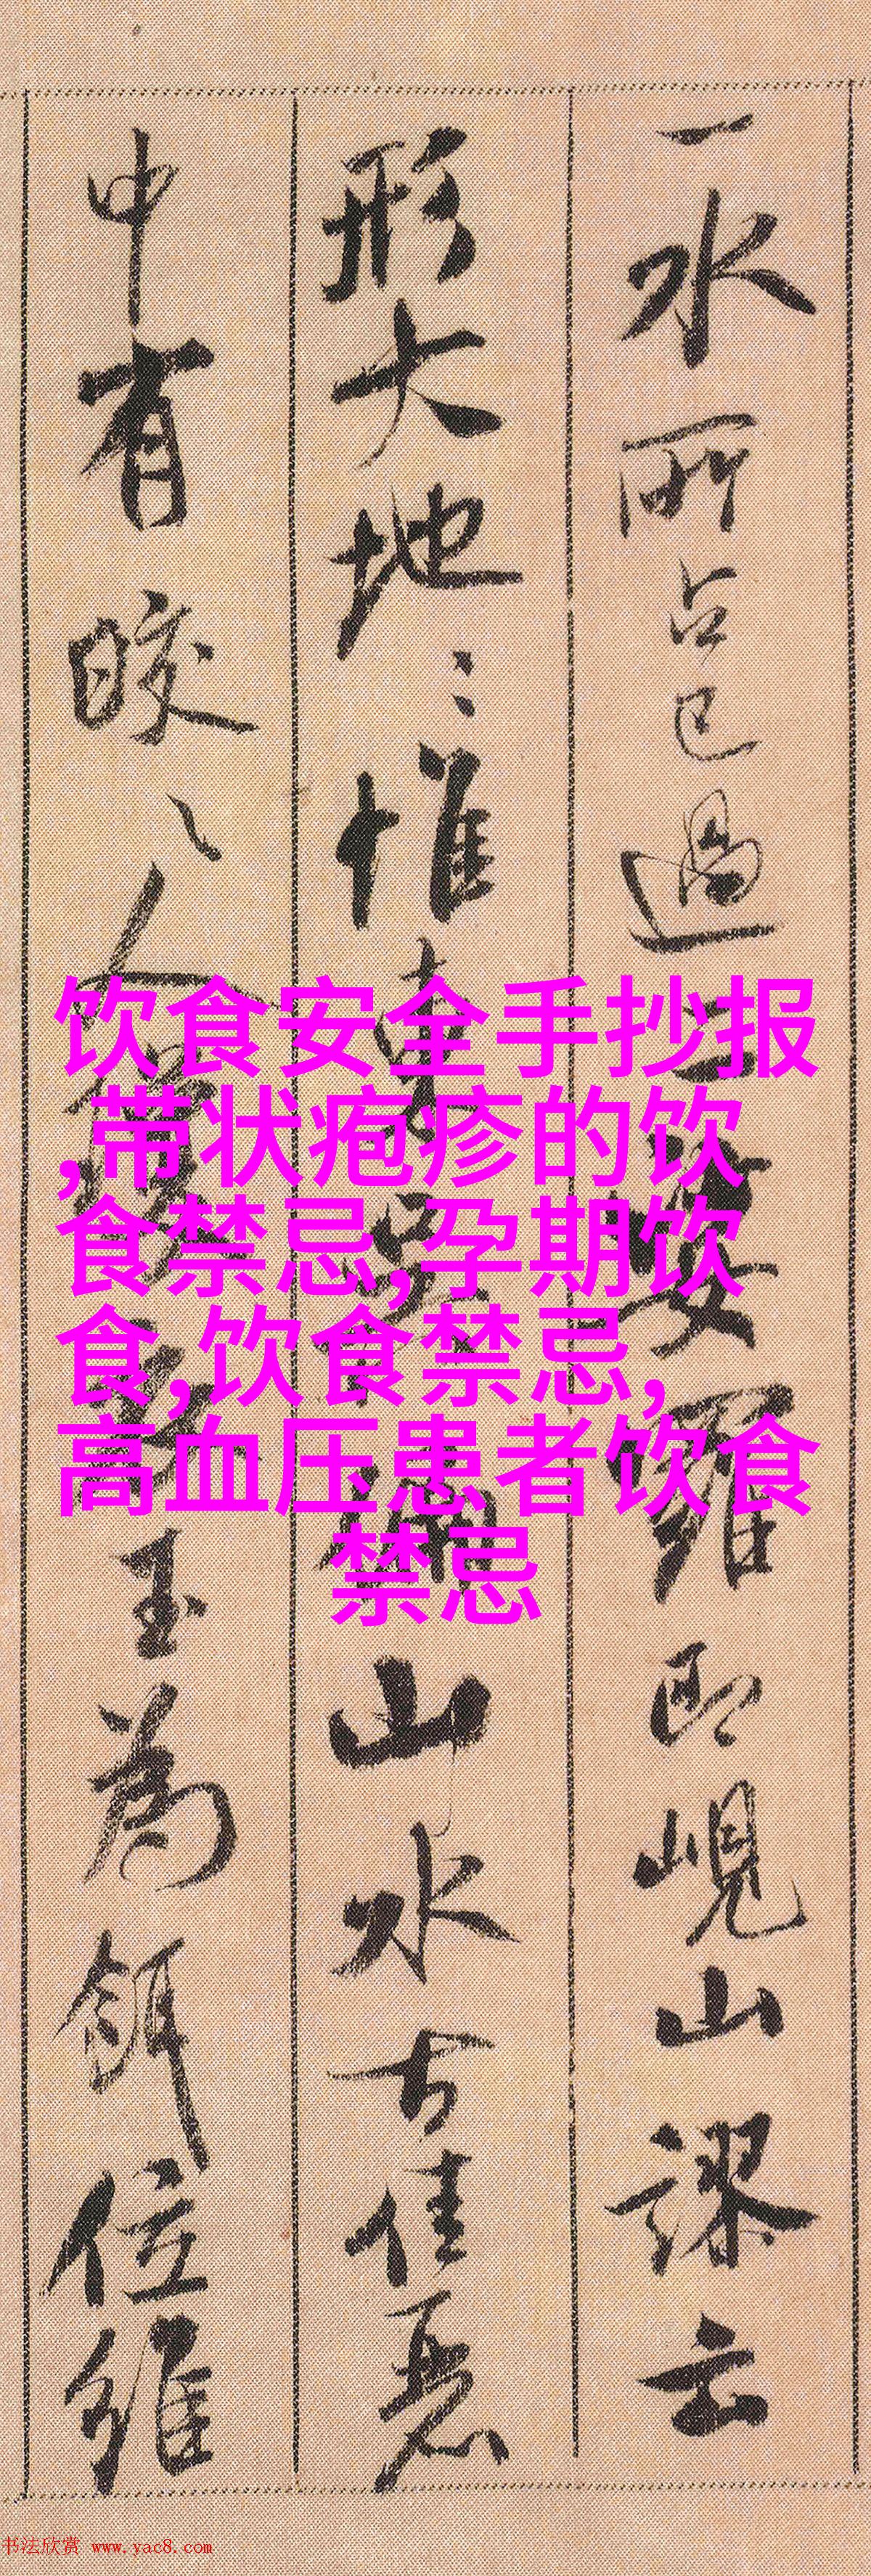 一水所占已過二娑羅即峴山謬云
形大地々惟東吴偏山水古佳麗
中有皎々人玉為餌位維
饮食安全手抄报
,带状疱疹的饮
食禁忌,孕期饮
食,饮食禁忌,
高血压患者饮食
禁忌
书法欣赏 www.yac8.com